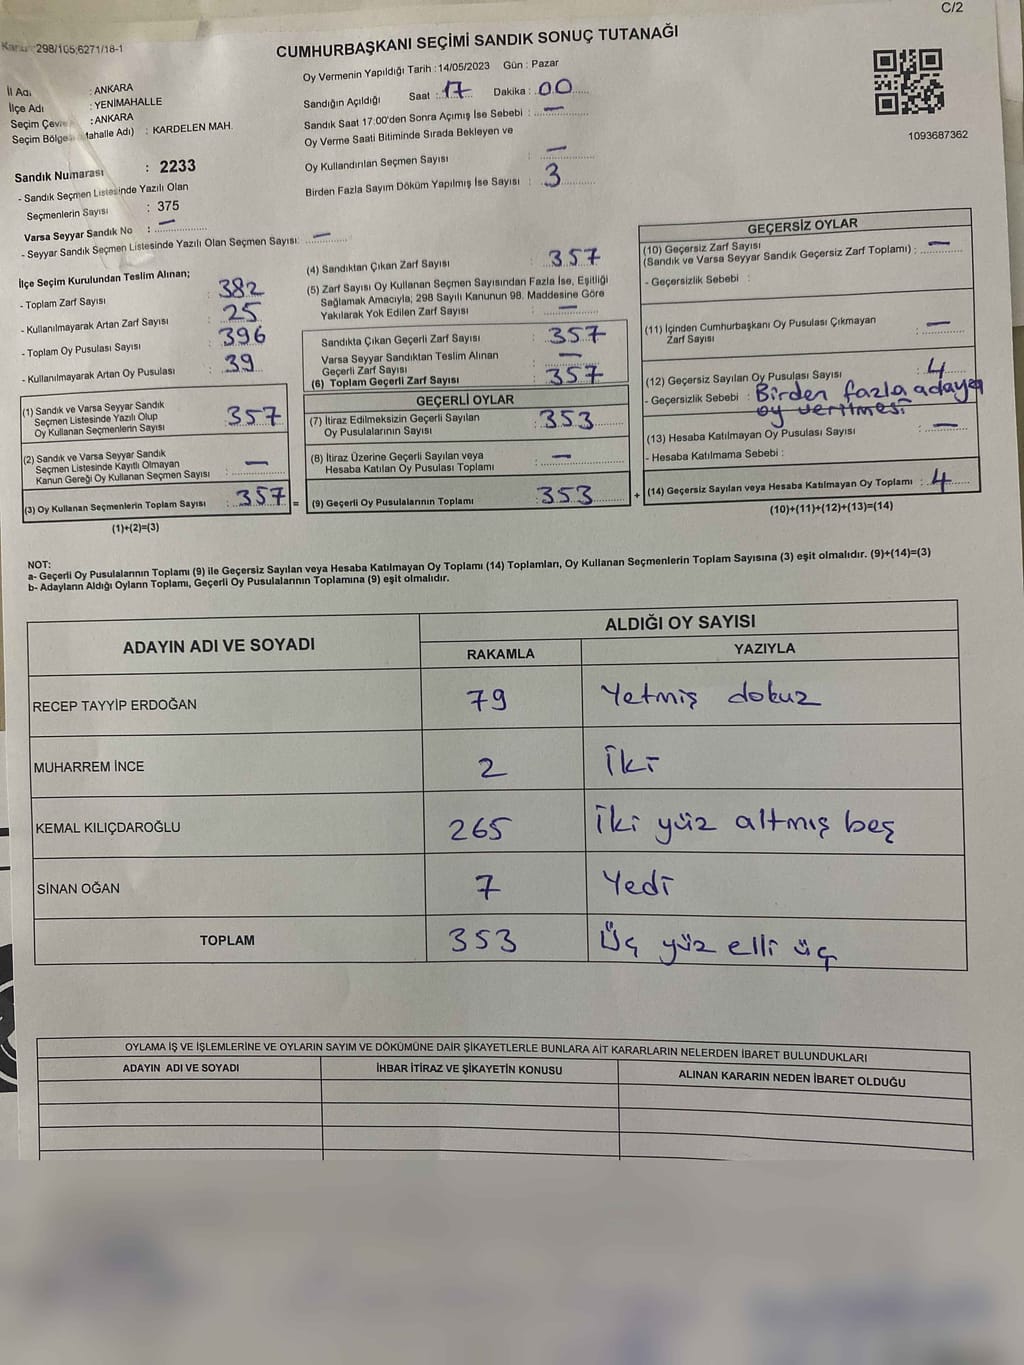 C/2
298/105;6271/18-1
CUMHURBAŞKANI SEÇİMİ SANDIK SONUÇ TUTANAĞI
Oy Vermenin Yapıldığı Tarih : 14/05/2023 Gün : Pazar
İl Adı : ANKARA
İlçe Adı : YENİMAHALLE
Seçim Çevre : ANKARA
Seçim Bölge Mahalle Adı) : KARDELEN MAH.
Sandığın Açıldığı Saat : 17 Dakika : 00
Sandık Saat 17:00'den Sonra Açımış İse Sebebi : —
Oy Verme Saati Bitiminde Sırada Bekleyen ve
Oy Kullandırılan Seçmen Sayısı : —
Birden Fazla Sayım Döküm Yapılmış İse Sayısı : 3
1093687362
Sandık Numarası : 2233
- Sandık Seçmen Listesinde Yazılı Olan
Seçmenlerin Sayısı : 375
Varsa Seyyar Sandık No : —
- Seyyar Sandık Seçmen Listesinde Yazılı Olan Seçmen Sayısı: —
İlçe Seçim Kurulundan Teslim Alınan;
- Toplam Zarf Sayısı : 382
- Kullanılmayarak Artan Zarf Sayısı : 25
- Toplam Oy Pusulası Sayısı : 396
- Kullanılmayarak Artan Oy Pusulası : 39
(1) Sandık ve Varsa Seyyar Sandık
Seçmen Listesinde Yazılı Olup
Oy Kullanan Seçmenlerin Sayısı : 357
(2) Sandık ve Varsa Seyyar Sandık
Seçmen Listesinde Kayıtlı Olmayan
Kanun Gereği Oy Kullanan Seçmen Sayısı : —
(3) Oy Kullanan Seçmenlerin Toplam Sayısı : 357 =
(1)+(2)=(3)
(4) Sandıktan Çıkan Zarf Sayısı : 357
(5) Zarf Sayısı Oy Kullanan Seçmen Sayısından Fazla İse, Eşitliği
Sağlamak Amacıyla, 298 Sayılı Kanunun 98. Maddesine Göre
Yakılarak Yok Edilen Zarf Sayısı : —
Sandıkta Çıkan Geçerli Zarf Sayısı : 357
Varsa Seyyar Sandıktan Teslim Alınan
Geçerli Zarf Sayısı : —
(6) Toplam Geçerli Zarf Sayısı : 357
GEÇERLİ OYLAR
(7) İtiraz Edilmeksizin Geçerli Sayılan
Oy Pusulalarının Sayısı : 353
(8) İtiraz Üzerine Geçerli Sayılan veya
Hesaba Katılan Oy Pusulası Toplamı : —
(9) Geçerli Oy Pusulalarının Toplamı : 353 +
GEÇERSİZ OYLAR
(10) Geçersiz Zarf Sayısı
(Sandık ve Varsa Seyyar Sandık Geçersiz Zarf Toplamı) : —
- Geçersizlik Sebebi :
(11) İçinden Cumhurbaşkanı Oy Pusulası Çıkmayan
Zarf Sayısı : —
(12) Geçersiz Sayılan Oy Pusulası Sayısı : 4
- Geçersizlik Sebebi : Birden fazla adaya
oy verilmesi
(13) Hesaba Katılmayan Oy Pusulası Sayısı : —
- Hesaba Katılmama Sebebi :
(14) Geçersiz Sayılan veya Hesaba Katılmayan Oy Toplamı : 4
(10)+(11)+(12)+(13)=(14)
NOT:
a- Geçerli Oy Pusulalarının Toplamı (9) ile Geçersiz Sayılan veya Hesaba Katılmayan Oy Toplamı (14) Toplamları, Oy Kullanan Seçmenlerin Toplam Sayısına (3) eşit olmalıdır. (9)+(14)=(3)
b- Adayların Aldığı Oyların Toplamı, Geçerli Oy Pusulalarının Toplamına (9) eşit olmalıdır.
ADAYIN ADI VE SOYADI ALDIĞI OY SAYISI
RAKAMLA YAZIYLA
RECEP TAYYİP ERDOĞAN 79 Yetmiş dokuz
MUHARREM İNCE 2 İki
KEMAL KILIÇDAROĞLU 265 İki yüz altmış beş
SİNAN OĞAN 7 Yedi
TOPLAM 353 Üç yüz elli üç
OYLAMA İŞ VE İŞLEMLERİNE VE OYLARIN SAYIM VE DÖKÜMÜNE DAİR ŞİKAYETLERLE BUNLARA AİT KARARLARIN NELERDEN İBARET BULUNDUKLARI
ADAYIN ADI VE SOYADI İHBAR İTİRAZ VE ŞİKAYETİN KONUSU ALINAN KARARIN NEDEN İBARET OLDUĞU